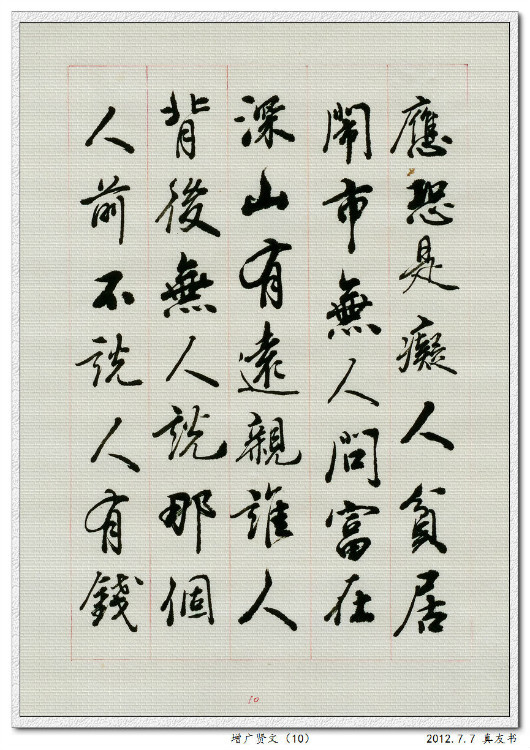 應恐是癡人貧居
鬧市無人問富在
深山有遠親誰人
背後無人說那個
人前不說人有錢
10
增广贤文（10）
2012.7.7 真友书